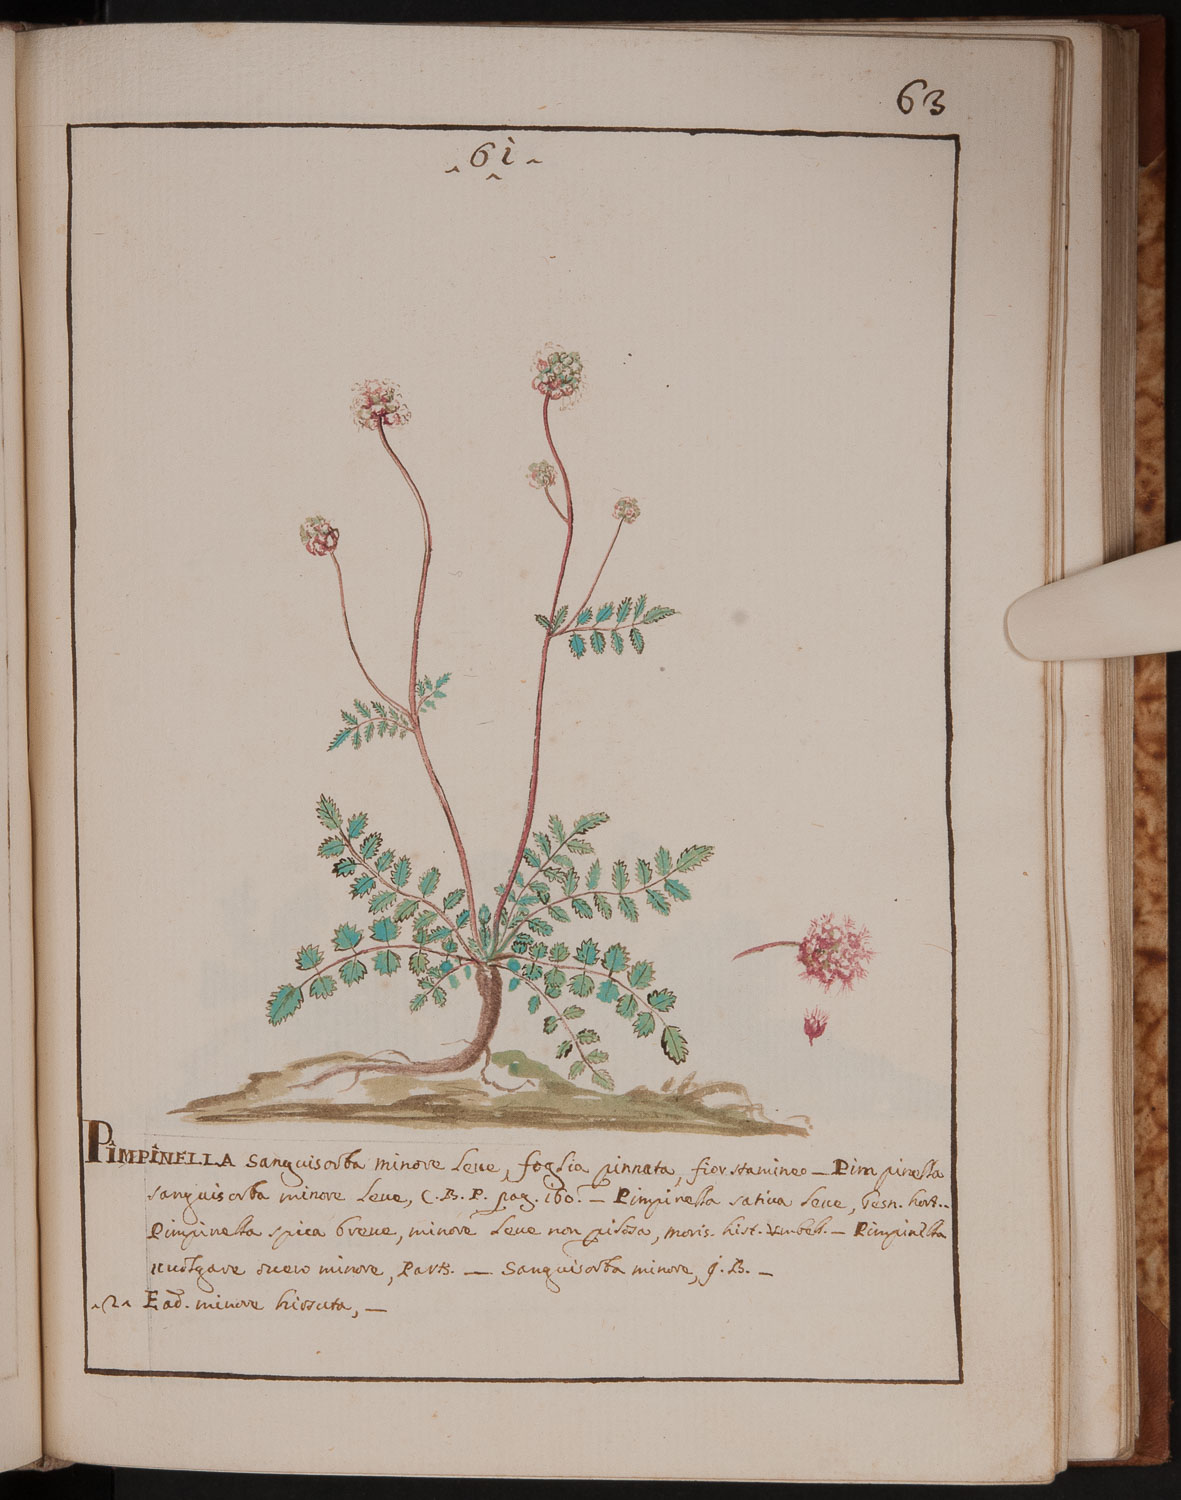 63
61
PIMPINELLA Sanguisorba minore leue, foglia pinnata, fior stamineo — Pimpinella
sanguisorba minore leue, C. B. P. pag. 160. — Pimpinella sativa leue, besn. hort..
Pimpinella spica breue, minore leue non pilosa, moris. hist. Vmbel. — Pimpinella
uuolgare minore, Park. — Sanguisorba minore, J. B. —
2 Ead. minore hirsuta, —